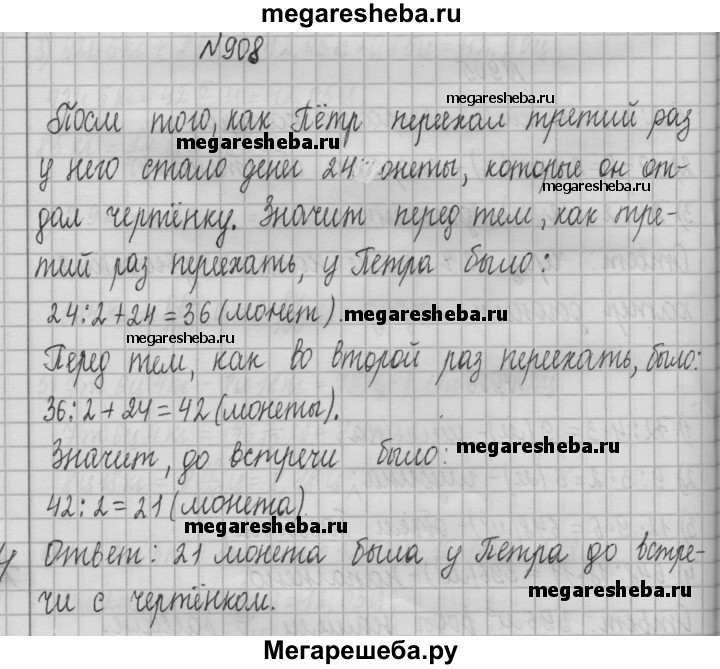 megaresheba.ru
№908
После того, как Пётр переехал третий раз
megaresheba.ru
megaresheba.ru
у него стало денег 24 онеты, которые он от-
megaresheba.ru
дал чертёнку. Значит перед тем, как тре-
тий раз переехать, у Петра было:
24:2+24=36 (монет).
megaresheba.ru
megaresheba.ru
Перед тем, как во второй раз переехать, было:
36:2+24=42 (монеты).
Значит, до встречи было:
megaresheba.ru
42:2=21 (монета).
megaresheba.ru
Ответ: 21 монета была у Петра до встре-
megaresheba.ru
чи с чертёнком.
Мегарешеба.ру